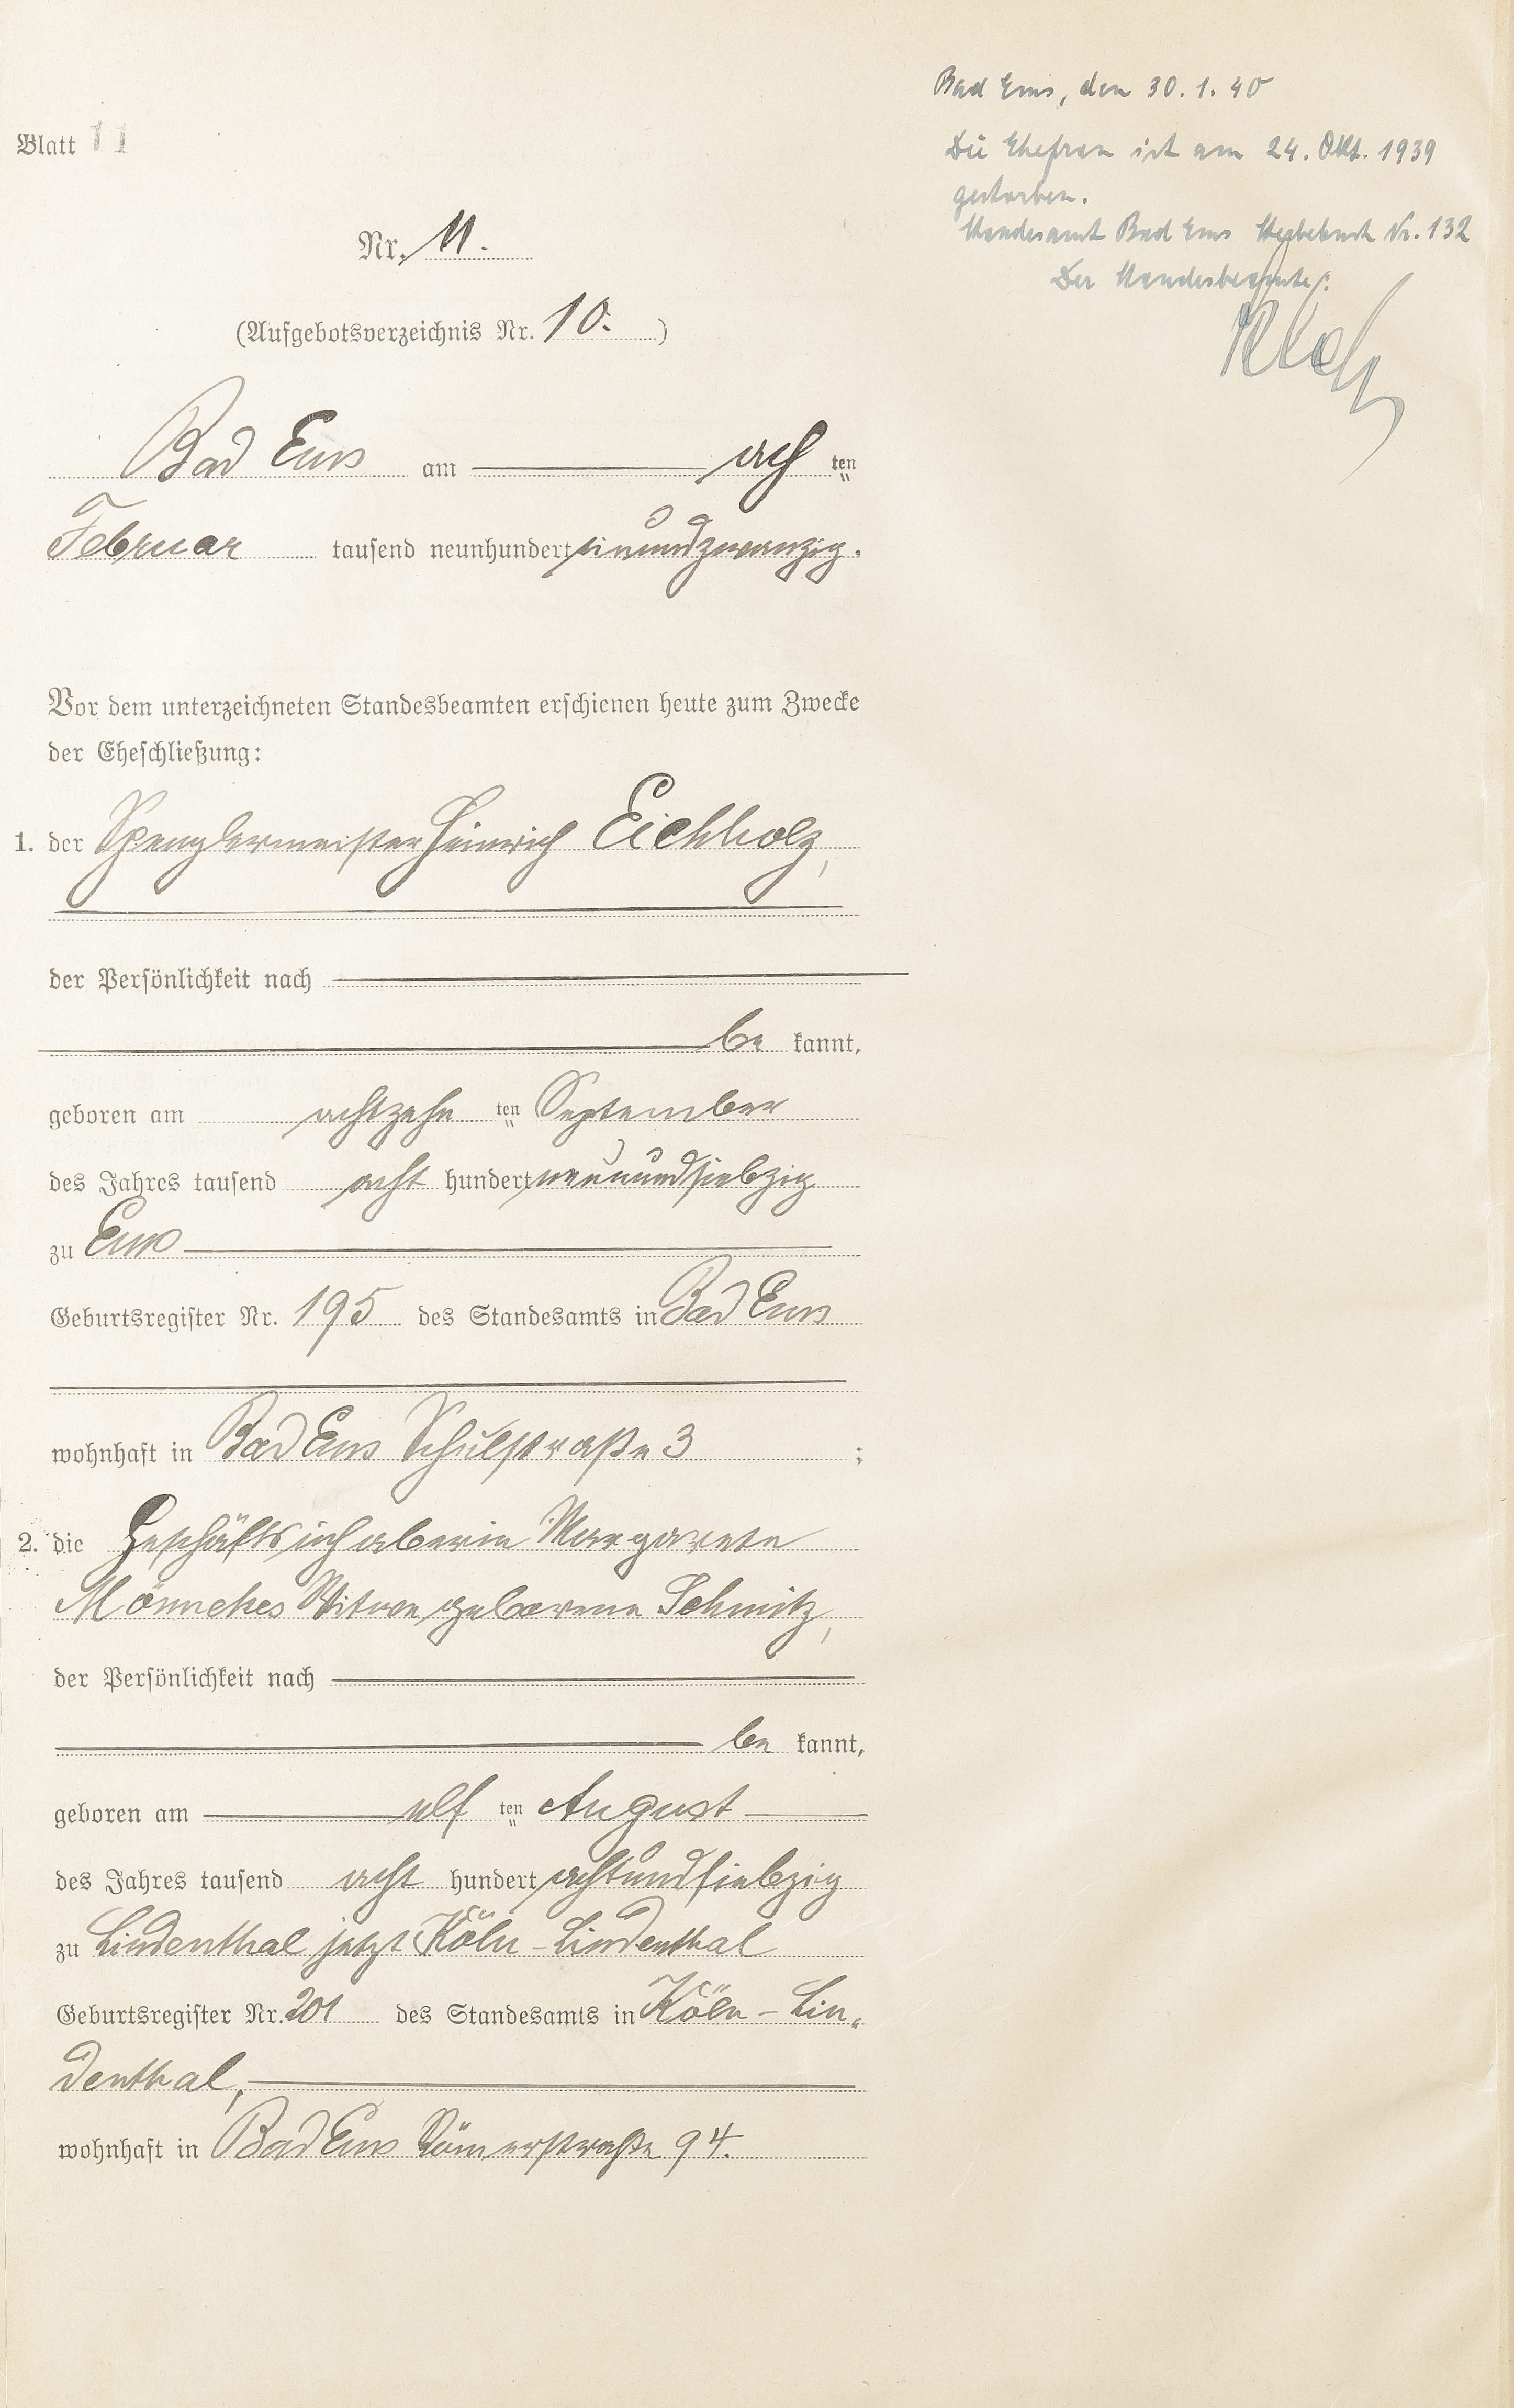 Bad Ems, den 30.1.40
Die Ehefrau ist am 24. Okt. 1939
gestorben.
Standesamt Bad Ems Sterbebuch Nr. 132
Der Standesbeamte:
Blatt 11
Nr. 11.
(Aufgebotsverzeichnis Nr. 10.)
Bad Ems am ach ten
Februar tausend neunhundert einundzwanzig.
Vor dem unterzeichneten Standesbeamten erschienen heute zum Zwecke
der Eheschließung:
1. der Spenglermeister Heinrich Eichholz,
der Persönlichkeit nach
be kannt,
geboren am achtzehn ten September
des Jahres tausend acht hundert neunundsiebzig
zu Ems
Geburtsregister Nr. 195 des Standesamts in Bad Ems
wohnhaft in Bad Ems Schulstraße 3 ;
2. die Geschäftsinhaberin Margarete
Mönnches Witwe geborene Schmitz,
der Persönlichkeit nach
be kannt,
geboren am elf ten August
des Jahres tausend acht hundert achtundsiebzig
zu Lindenthal jetzt Köln-Lindenthal
Geburtsregister Nr. 201 des Standesamts in Köln-Lin-
denthal,
wohnhaft in Bad Ems Römerstraße 94.